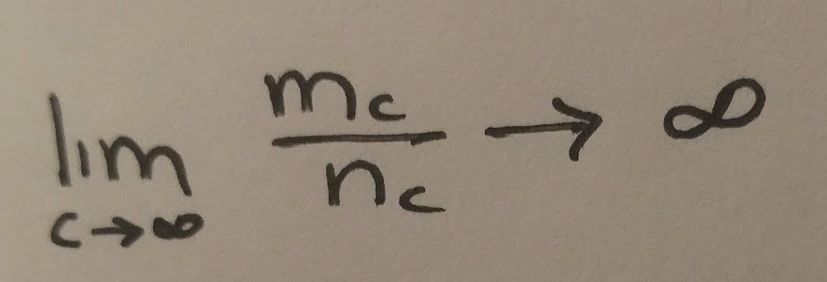 lim_{c→∞} \frac{m_c}{n_c} → ∞